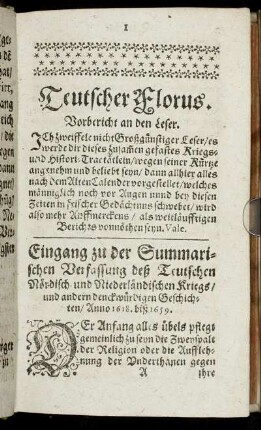 1
Teutscher Florus.
Vorbericht an den Leser.
ICh zweiffele nicht Großgünstiger Leser/es
werde dir dieses zusamen gefastes Kriegs-
und Histori-Tractätlein/wegen seiner Kürtze
angenehm und beliebt seyn/ dann allhier alles
nach dem Alten Calender vorgestellet/welches
männiglich noch vor Augen unnd bey diesen
Zeiten in frischer Gedächtnus schwebet/ wird
also mehr Auffmerckens/ als weitläufftigen
Berichts vonnöthen seyn. Vale.
Eingang zu der Summari-
schen Verfassung deß Teutschen
Nördisch- und Niederländischen Kriegs/
und andern denckwürdigen Geschich-
ten/ Anno 1618. biß 1659.
DEr Anfang alles übels pflegt
gemeinlich zu seyn die Zweyspalt
der Religion oder die Auffleh-
nung der Underthanen gegen
A ihre